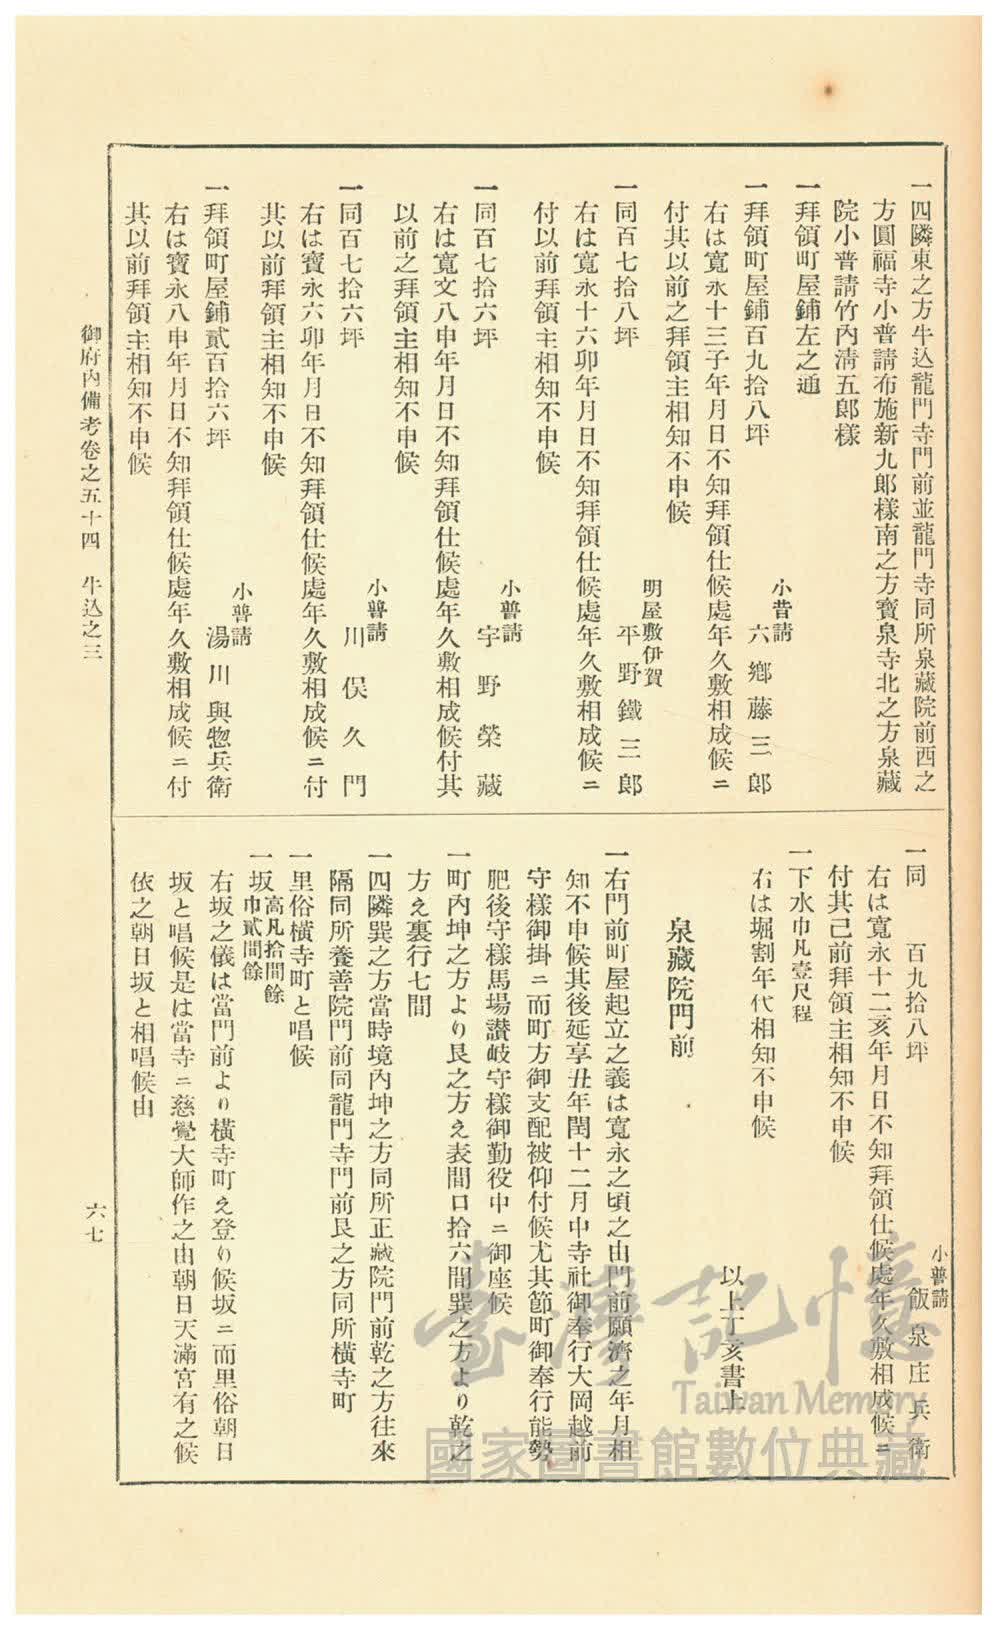 一四隣東之方牛込龍門寺門前並龍門寺同所泉藏院前西之
方圓福寺小普請布施新九郎樣南之方寶泉寺北之方泉藏
院小普請竹內淸五郎樣
一拜領町屋鋪左之通
一拜領町屋鋪百九拾八坪
小普請
六鄕藤三郎
右は寬永十三子年月日不知拜領仕候處年久敷相成候ニ
付其以前之拜領主相知不申候
一同百七拾八坪
明屋敷伊賀
平野鐵三郎
右は寬永十六卯年月日不知拜領仕候處年久敷相成候ニ
付以前拜領主相知不申候
一同百七拾六坪
小普請
宇野榮藏
右は寬文八申年月日不知拜領仕候處年久敷相成候付其
以前之拜領主相知不申候
一同百七拾六坪
小普請
川俣久門
右は寶永六卯年月日不知拜領仕候處年久敷相成候ニ付
其以前拜領主相知不申候
一拜領町屋鋪貳百拾六坪
小普請
湯川與惣兵衛
右は寶永八申年月日不知拜領仕候處年久敷相成候ニ付
其以前拜領主相知不申候
一同 百九拾八坪
小普請
飯泉庄兵衛
右は寬永十二亥年月日不知拜領仕候處年久敷相成候ニ
付其已前拜領主相知不申候
一下水巾凡壹尺程
右は堀割年代相知不申候
以上丁亥書上
泉藏院門前
一右門前町屋起立之義は寬永之頃之由門前願濟之年月相
知不申候其後延享丑年閏十二月中寺社御奉行大岡越前
守樣御掛ニ而町方御支配被仰付候尤其節町御奉行能勢
肥後守樣馬場讃岐守樣御勤役中ニ御座候
一町內坤之方より艮之方え表間口拾六間巽之方より乾之
方え裏行七間
一四隣巽之方當時境內坤之方同所正藏院門前乾之方往來
隔同所養善院門前同龍門寺門前艮之方同所橫寺町
一里俗橫寺町と唱候
一坂高凡拾間餘
巾貳間餘
右坂之儀は當門前より橫寺町え登り候坂ニ而里俗朝日
坂と唱候是は當寺ニ慈覺大師作之由朝日天滿宮有之候
依之朝日坂と相唱候由
御府內備考卷之五十四 牛込之三
六七
臺灣記憶
Taiwan Memory
國家圖書館數位典藏